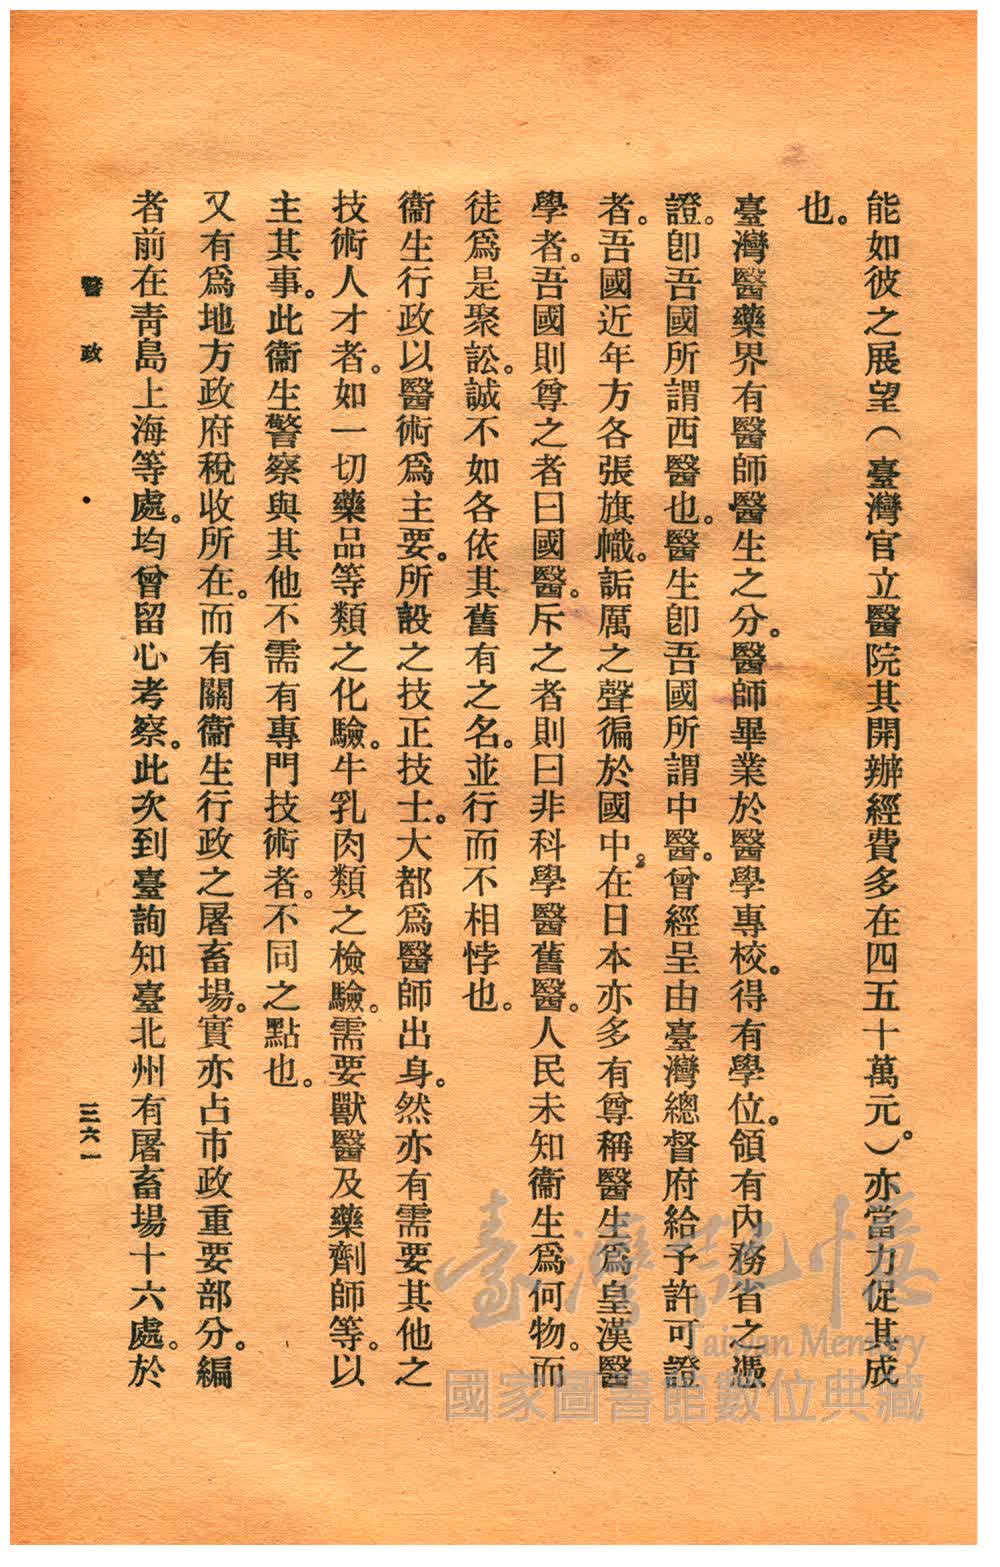 能如彼之展望(臺灣官立醫院其開辦經費多在四五十萬元。)亦當力促其成
也。
臺灣醫藥界有醫師醫生之分。醫師畢業於醫學專校。得有學位。領有內務省之憑
證。卽吾國所謂西醫也。醫生卽吾國所謂中醫。曾經呈由臺灣總督府給予許可證
者。吾國近年方各張旗幟。詬厲之聲徧於國中。在日本亦多有尊稱醫生爲皇漢醫
學者。吾國則尊之者曰國醫。斥之者則曰非科學醫舊醫。人民未知衞生爲何物。而
徒爲是聚訟。誠不如各依其舊有之名。並行而不相悖也。
衞生行政以醫術爲主要。所設之技正技士。大都爲醫師出身。然亦有需要其他之
技術人才者。如一切藥品等類之化驗。牛乳肉類之檢驗。需要獸醫及藥劑師等。以
主其事。此衞生警察與其他不需有專門技術者。不同之點也。
又有爲地方政府稅收所在。而有關衞生行政之屠畜場。實亦占市政重要部分。編
者前在靑島上海等處。均曾留心考察。此次到臺詢知臺北州有屠畜場十六處。於
警政
三六一
臺灣記憶
Taiwan Memory
國家圖書館數位典藏